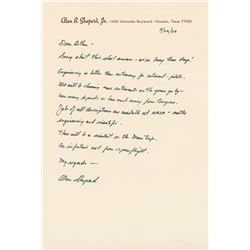 Alan B. Shepard, Jr. • 1600 Holcombe Boulevard • Houston, Texas 77025
Dear
Sorry about this short answer - we're busy these days!
Engineering is better than astronomy for astronaut-pilots.
We will be choosing more astronauts as the years go by -
how many depends on how much money from Congress.
Jobs of all descriptions are available at NASA - mostly
engineering and scientific.
There will be a scientist on the Moon trip.
am in favor of
My regards -
Alan Shepard